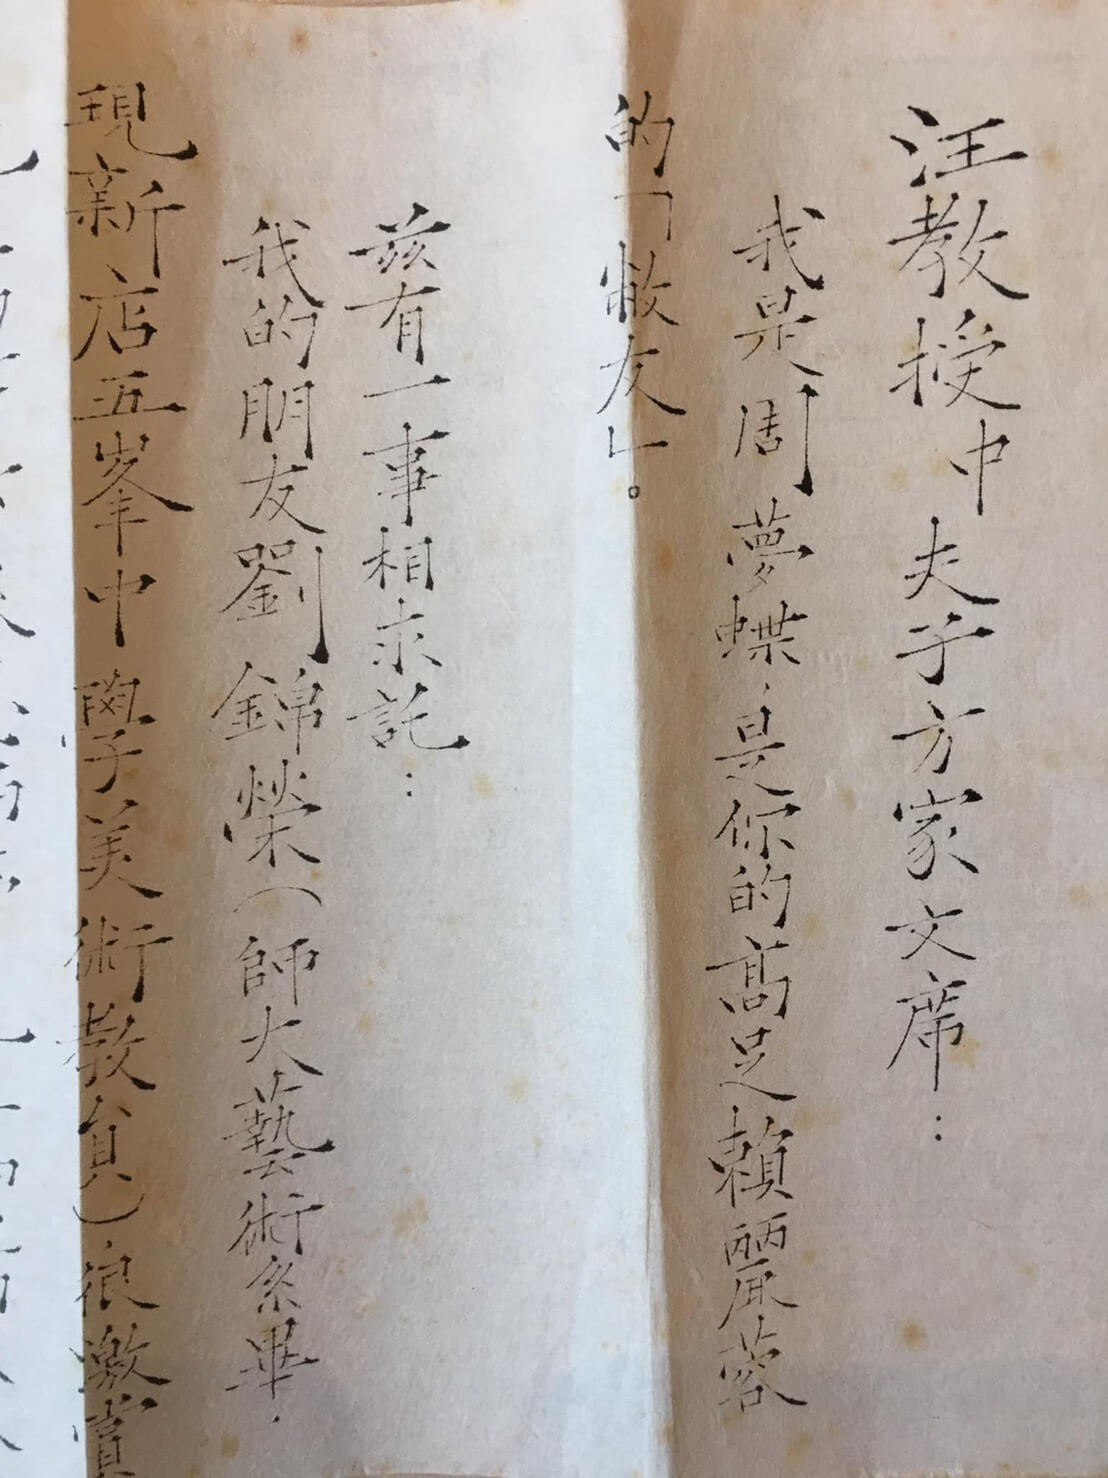 汪教授中夫子方家文席：
我是周夢蝶，是你的高足賴麗蓉
的「敝友」。
茲有一事相求託：
我的朋友劉錦榮（師大藝術系畢，
現新店五峯中學美術教員）很激賞